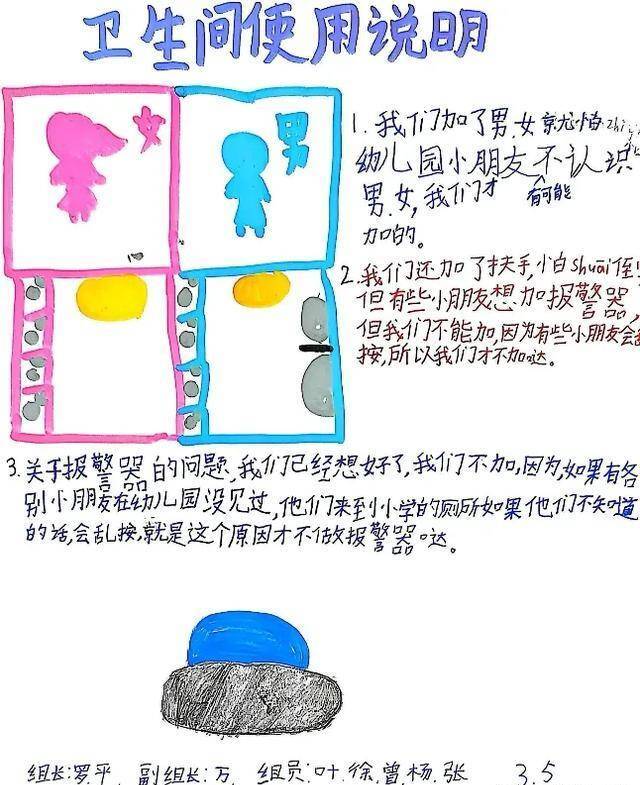 卫生间使用说明
女
男
1. 我们加了男.女就怕
幼儿园小朋友不认识
男.女,我们才有可能
加的。
2.我们还加了扶手,小白shuāi
但有些小朋友想加报警器,
但我们不能加,因为有些小朋友会
按,所以我们才不加哒。
3.关于报警器的问题,我们已经想好了,我们不加,因为,如果有各
别小朋友在幼儿园没见过,他们来到小学的厕所如果他们不知道
的话,会乱按,就是这个原因才不做报警器哒。
组长:罗.平. 副组长:万. 组员:叶.徐.曾.杨.张 3.5